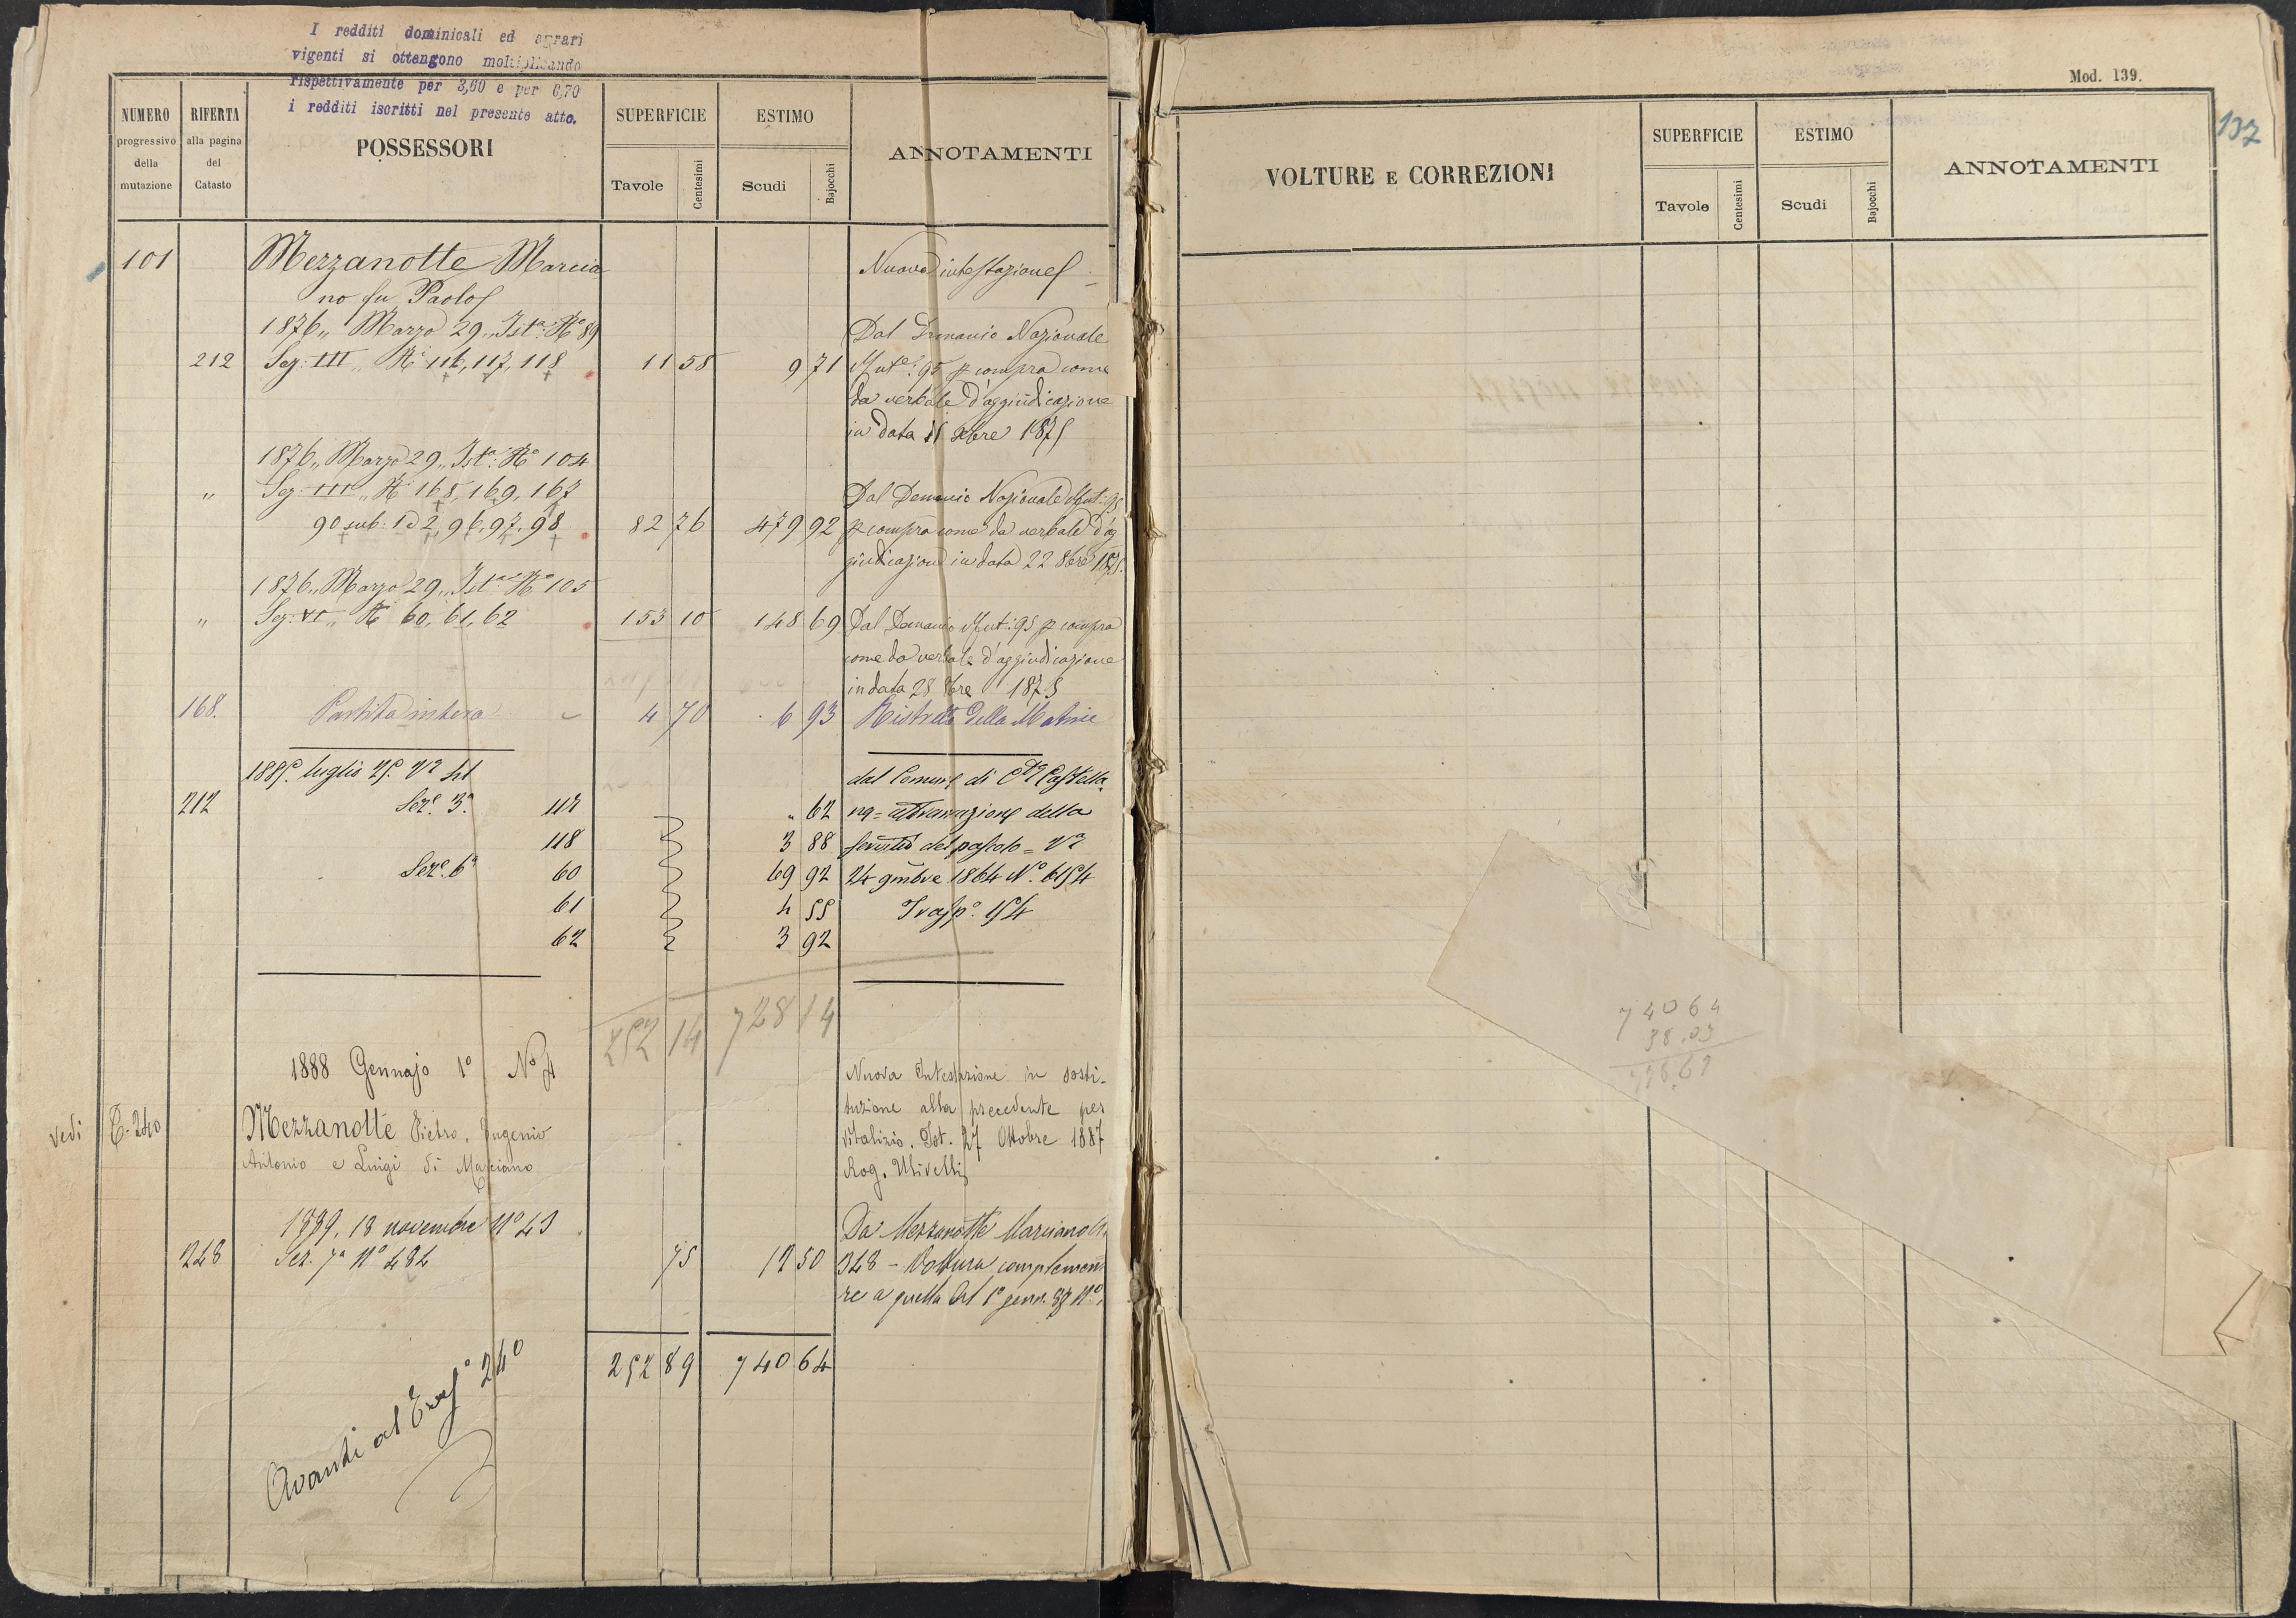 I redditi dominicali ed agrari
vigenti si ottengono moltiplicando
rispettivamente per 3,60 e per 6,70
i redditi iscritti nel presente atto.
NUMERO progressivo della mutazione
RIFERTA alla pagina del Catasto
POSSESSORI
SUPERFICIE
Tavole Centesimi
ESTIMO
Scudi Bajocchi
ANNOTAMENTI
101 Mezzanotte Marcia Nuova intestazione
no fu Paolo
1876,, Marzo 29,, Ista: No 89 Dal Demanio Nazionale
212 Sez: III,, Ni 116, 117, 118 11 58 9 71 Mute: 95 p compra come
da verbale d'aggiudicazione
in data 15 Xbre 1875
1876,, Marzo 29,, Ista: No 104
,, Sez: III,, Ni 165, 169, 167 Dal Demanio Nazionale Mut: 95
90 sub: 1 e 2, 96, 97, 98 82 76 479 92 p compra come da verbale d'ag
giudicazion in data 22 8bre 1875.
1876,, Marzo 29,, Ista: No 105
,, Sez: VI,, Ni 60, 61, 62 153 10 148 69 Dal Demanio Mut: 95 p compra
come da verbale d'aggiudicazione
in data 28 8bre 1875
168. Partita intera 4 70 6 93 Ristretto della Matrice
1885. luglio 25. Va 41 dal Comune di Cta Castella
212 Seze. 3a 117 ,, 62 na = affrancazione della
118 3 88 servitù del pascolo = Va
Seze. 6a 60 69 92 24 9mbre 1864 No. 6154
61 4 55 Trasp. 154
62 3 92
252 14 728 14
1888 Gennajo 1o No 4 Nuova Intestazione in sosti-
tuzione alla precedente per
vedi T. 240 Mezzanotte Pietro, Eugenio vitalizio. Ist. 27 Ottobre 1887
Antonio e Luigi di Marciano Rog. Ulivelli
1889, 18 novembre No 43 Da Mezzanotte Marciano
248 Sez. 7a No 484 75 12 50 248 – Voltura complemen
re a quella del 1o genn.
252 89 740 64
Avanti al Trasp. 240
Mod. 139.
137
VOLTURE E CORREZIONI
SUPERFICIE
Tavole Centesimi
ESTIMO
Scudi Bajocchi
ANNOTAMENTI
740 64
38.03